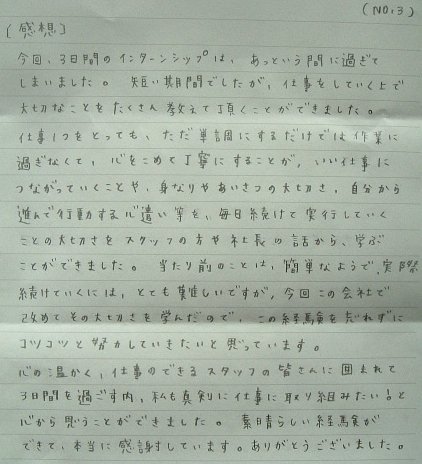 (NO.3)
[感想]
今回、3日間のインターンシップは、あっという間に過ぎて
しまいました。 短い期間でしたが、仕事をしていく上で
大切なことをたくさん教えて頂くことができました。
仕事1つをとっても、ただ単調にするだけでは作業に
過ぎなくて、心をこめて丁寧にすることが、いい仕事に
つながっていくことや、身なりやあいさつの大切さ、自分から
進んで行動する心遣い等を、毎日続けて実行していく
ことの大切さをスタッフの方や社長の話から、学ぶ
ことができました。 当たり前のことは、簡単なようで、実際
続けていくには、とても難しいですが、今回この会社で
改めてその大切さを学んだので、この経験を忘れずに
コツコツと努力していきたいと思っています。
心の温かく、仕事のできるスタッフの皆さんに囲まれて
3日間を過ごす内、私も真剣に仕事に取り組みたい!と
心から思うことができました。 素晴らしい経験が
できて、本当に感謝しています。ありがとうございました。